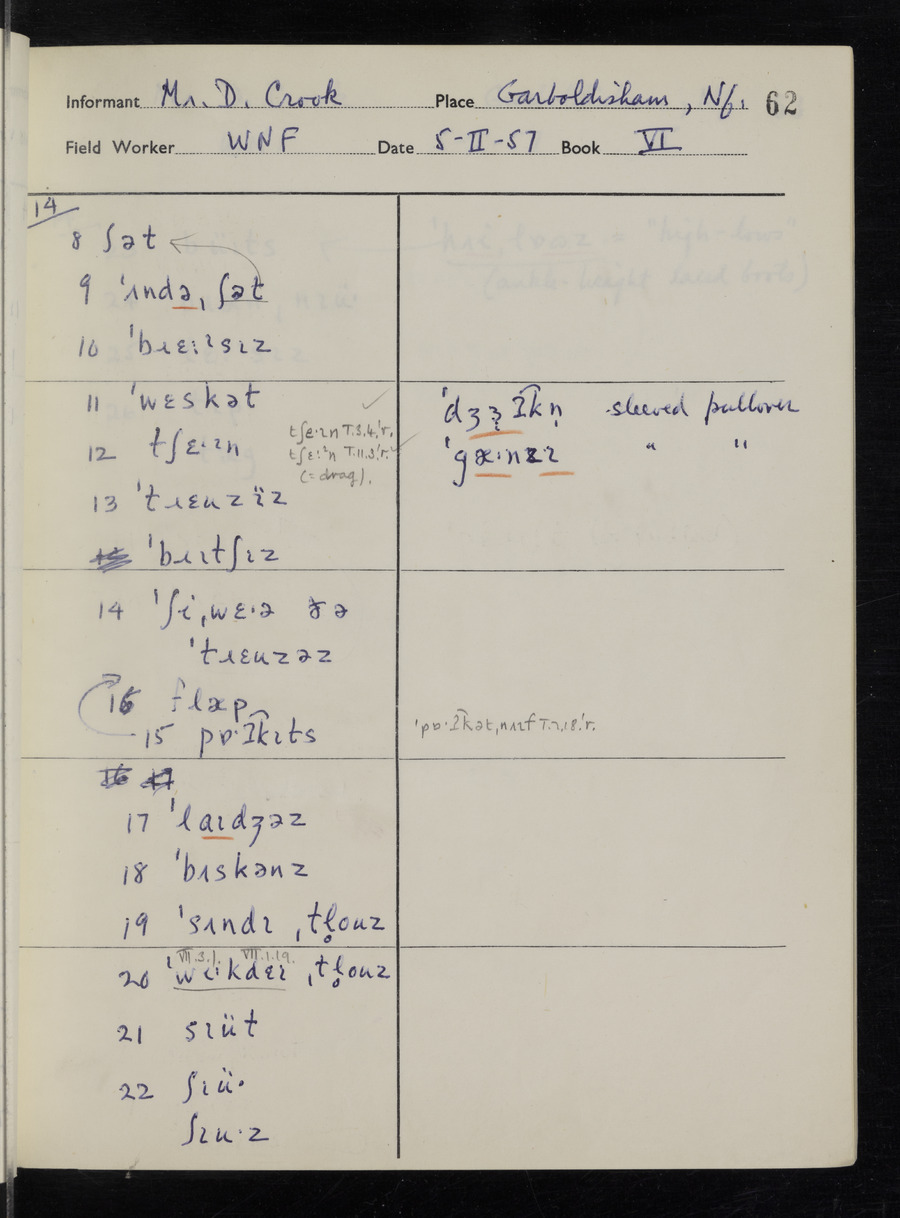 Informant Mr. D. Crook Place Garboldisham, Nf. 62
Field Worker WNF Date 5-II-57 Book VI
14
8 ʃət
9 ˈʌndə, ʃət
10 ˈbɹɛːˀsɪz
11 ˈwɛskət
12 tʃɛ·ɪn
tʃɛ·ɪn T.3.4.ˈr.
tʃɛːˀn T.11.3.ˈr.
(= drag).
13 ˈtɹɛuzïz
ˈbɹɪtʃɪz
14 ˈʃiˌwɛ·ə ðə
ˈtɹɛuzəz
16 flæp
15 pɒ·ʔ͡kɪts
17 ˈlaɪdʒəz
18 ˈbɪskənz
19 ˈsʌndɪ ˌtl̥ouz
20 ˈwɪːkdɛɪ ˌtl̥ouz
VII.3.1. VII.1.19.
21 sɪüt
22 ʃɪü·
ʃɪu·z
ˈdʒɜ̣ʔ͡kn̩ sleeved pullover
ˈgæ·nzɪ " "
ˈpɒ·ʔ͡kət,nʌɪf T.7,18.ˈr.